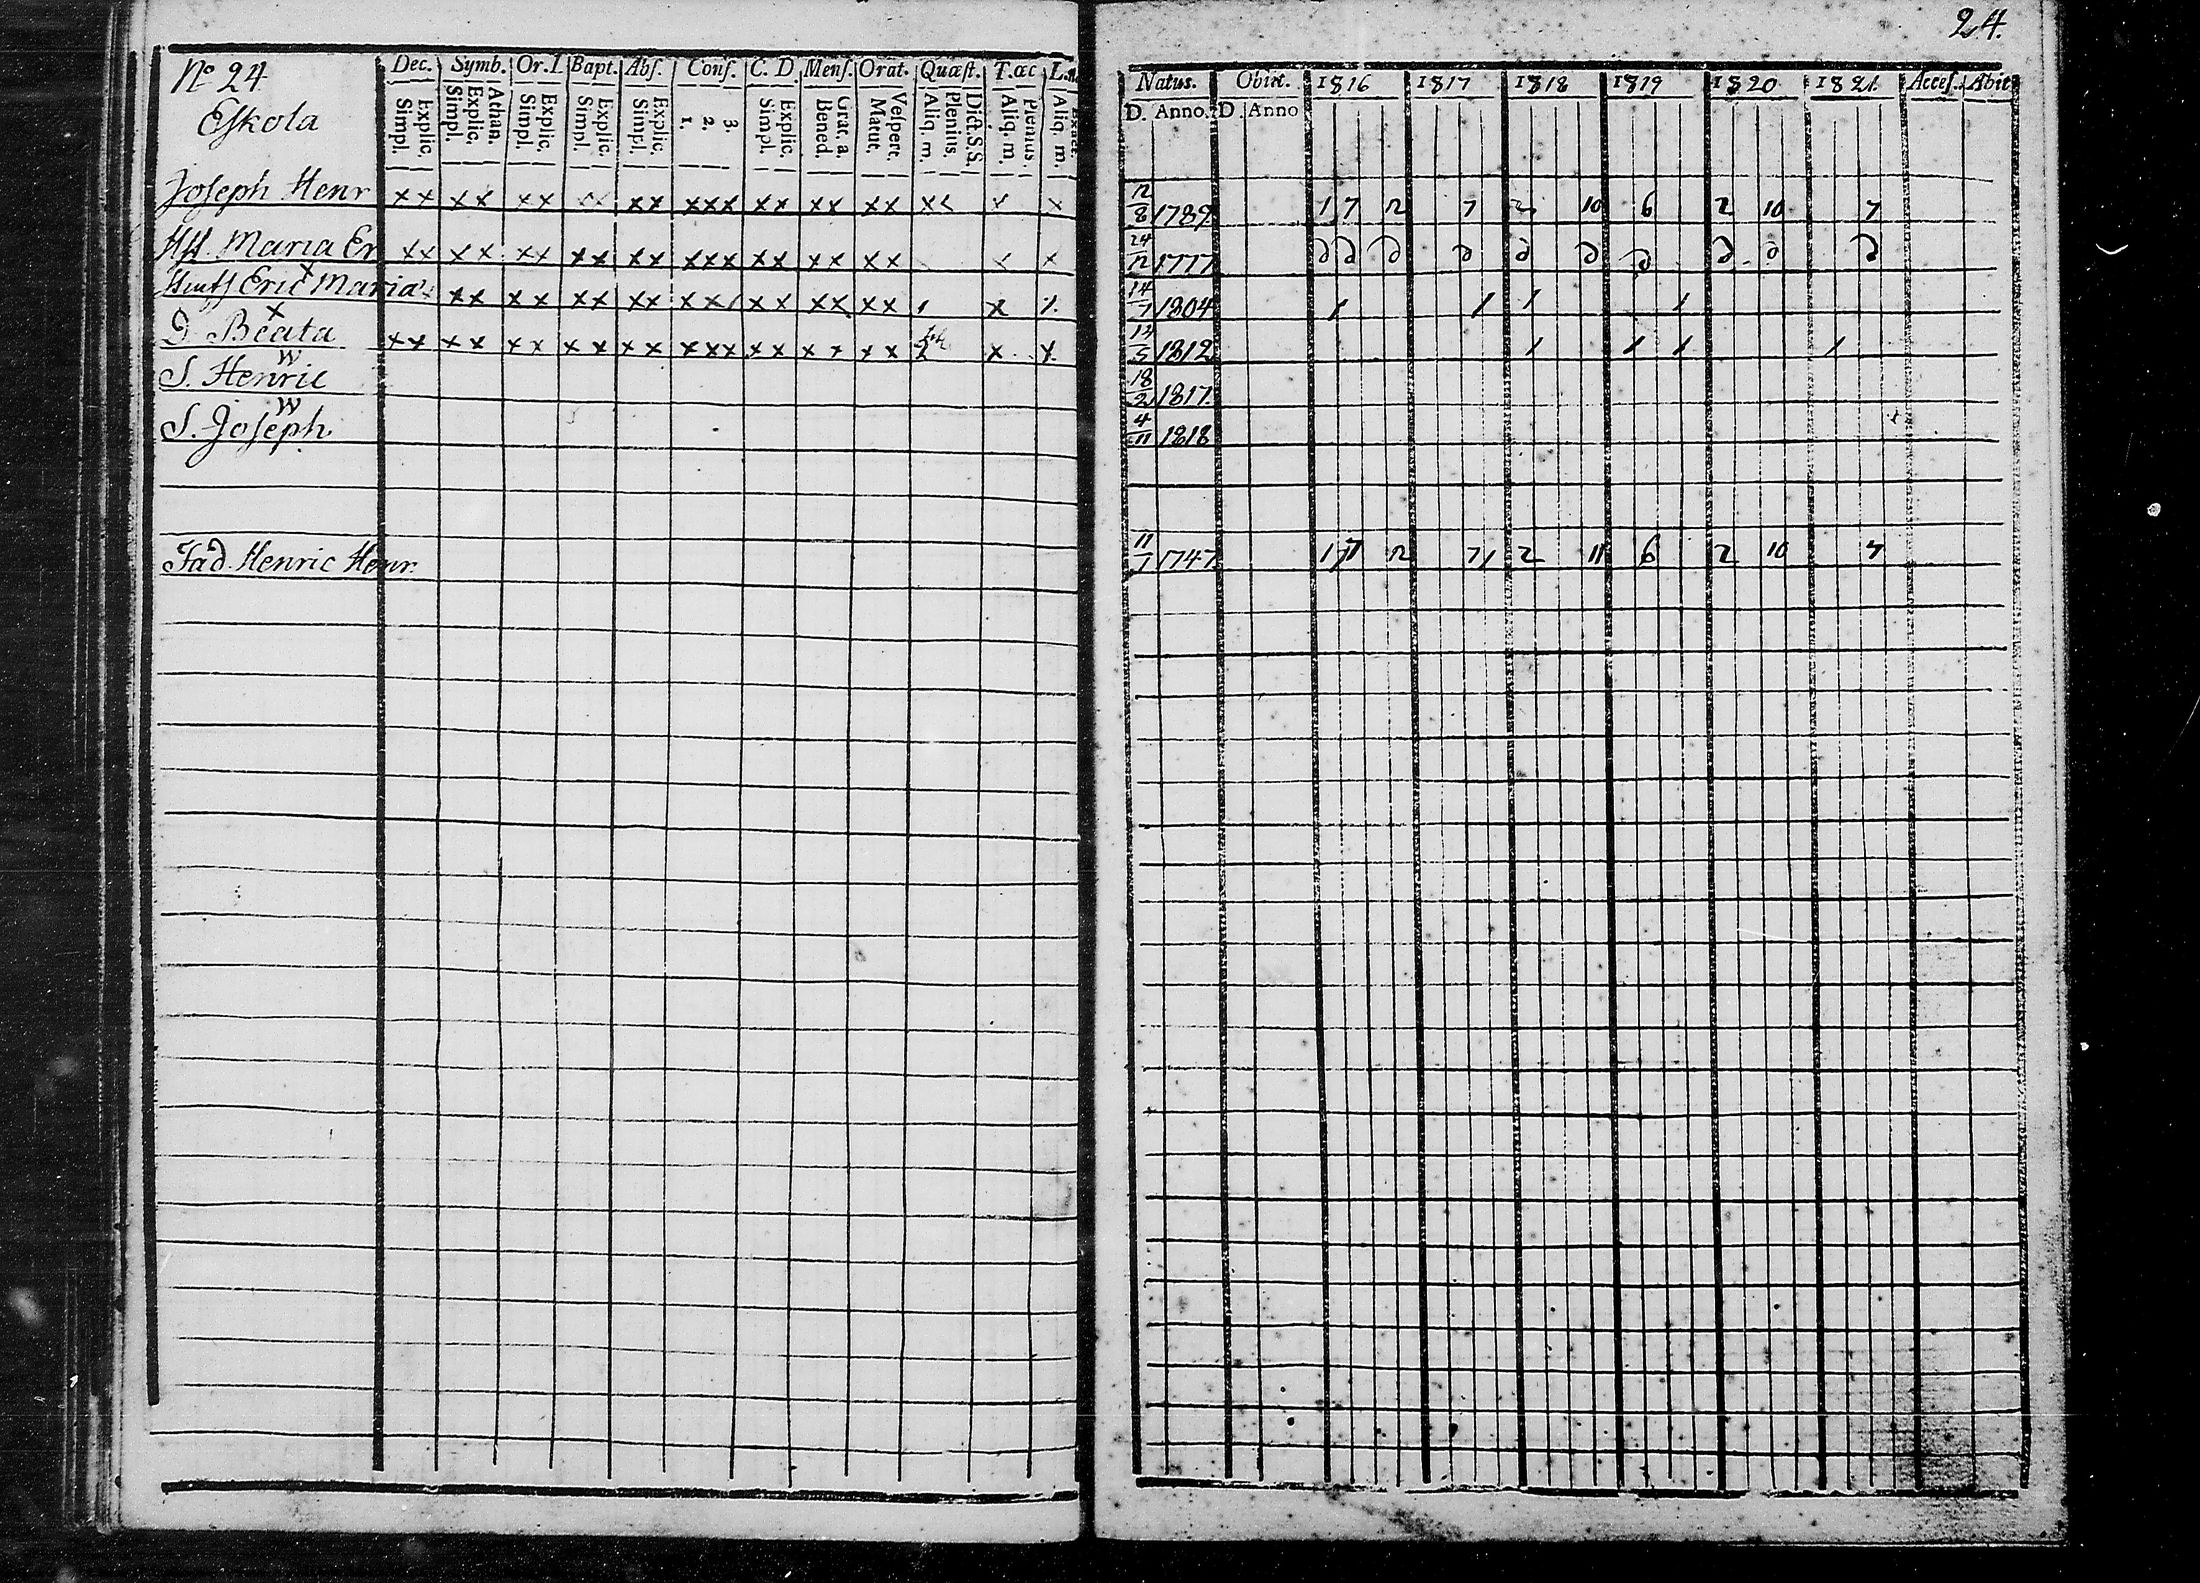 24.
No 24
Eskola
Dec. Symb. Or. D. Bapt. Abs. Conf. C. D. Mens. Orat. Quæst. T. œc L.
Explic. Simpl. Athan. Explic. Simpl. Explic. Simpl. Explic. Simpl. Explic. Simpl. 3. 2. 1. Explic. Simpl. Grat. a. Bened. Vespert. Matut. Dict. S.S. Plenius. Aliq. m. Plenius. Aliq. m. Aliq. m.
Natus. Obiit. 1816 1817 1818 1819 1820 1821 Acces. Abiit
D. Anno. D. Anno
Joseph Henr x x x x x x x x x x x x x x x x x x x x x x x 12/8 1789 1 7 12 7 2 10 6 2 10 7
H H. Maria Er x x x x x x x x x x x x x x x x x x x x x 24/12 1777 D D D D D D D D D D
Eric Maria x x x x x x x x x x x x x x x x x x 14/7 1804 1 1 1 1
D. Beata x x x x x x x x x x x x x x x x x x x x x 1812 1 1 1 1
S. Henric 18/2 1817.
S. Joseph. 4/11 1818
Fad. Henric Henr. 11/1 1747 1 7 12 7 1 2 11 6 2 10 7